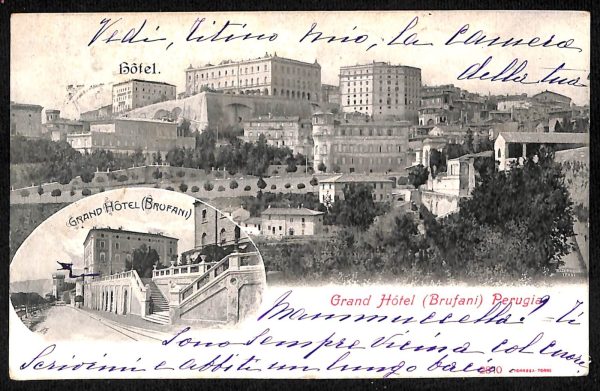 Vedi, Titino mio, la camera
della tua
Hôtel.
GRAND HÔTEL (BRUFANI)
Grand Hôtel (Brufani) Perugia
Mammuccella? - Ti
sono sempre vicina col cuore
Scrivimi e abbiti un lungo bacio